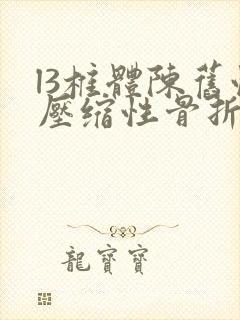 l3椎體陳舊性
壓縮性骨折
龍寶寶